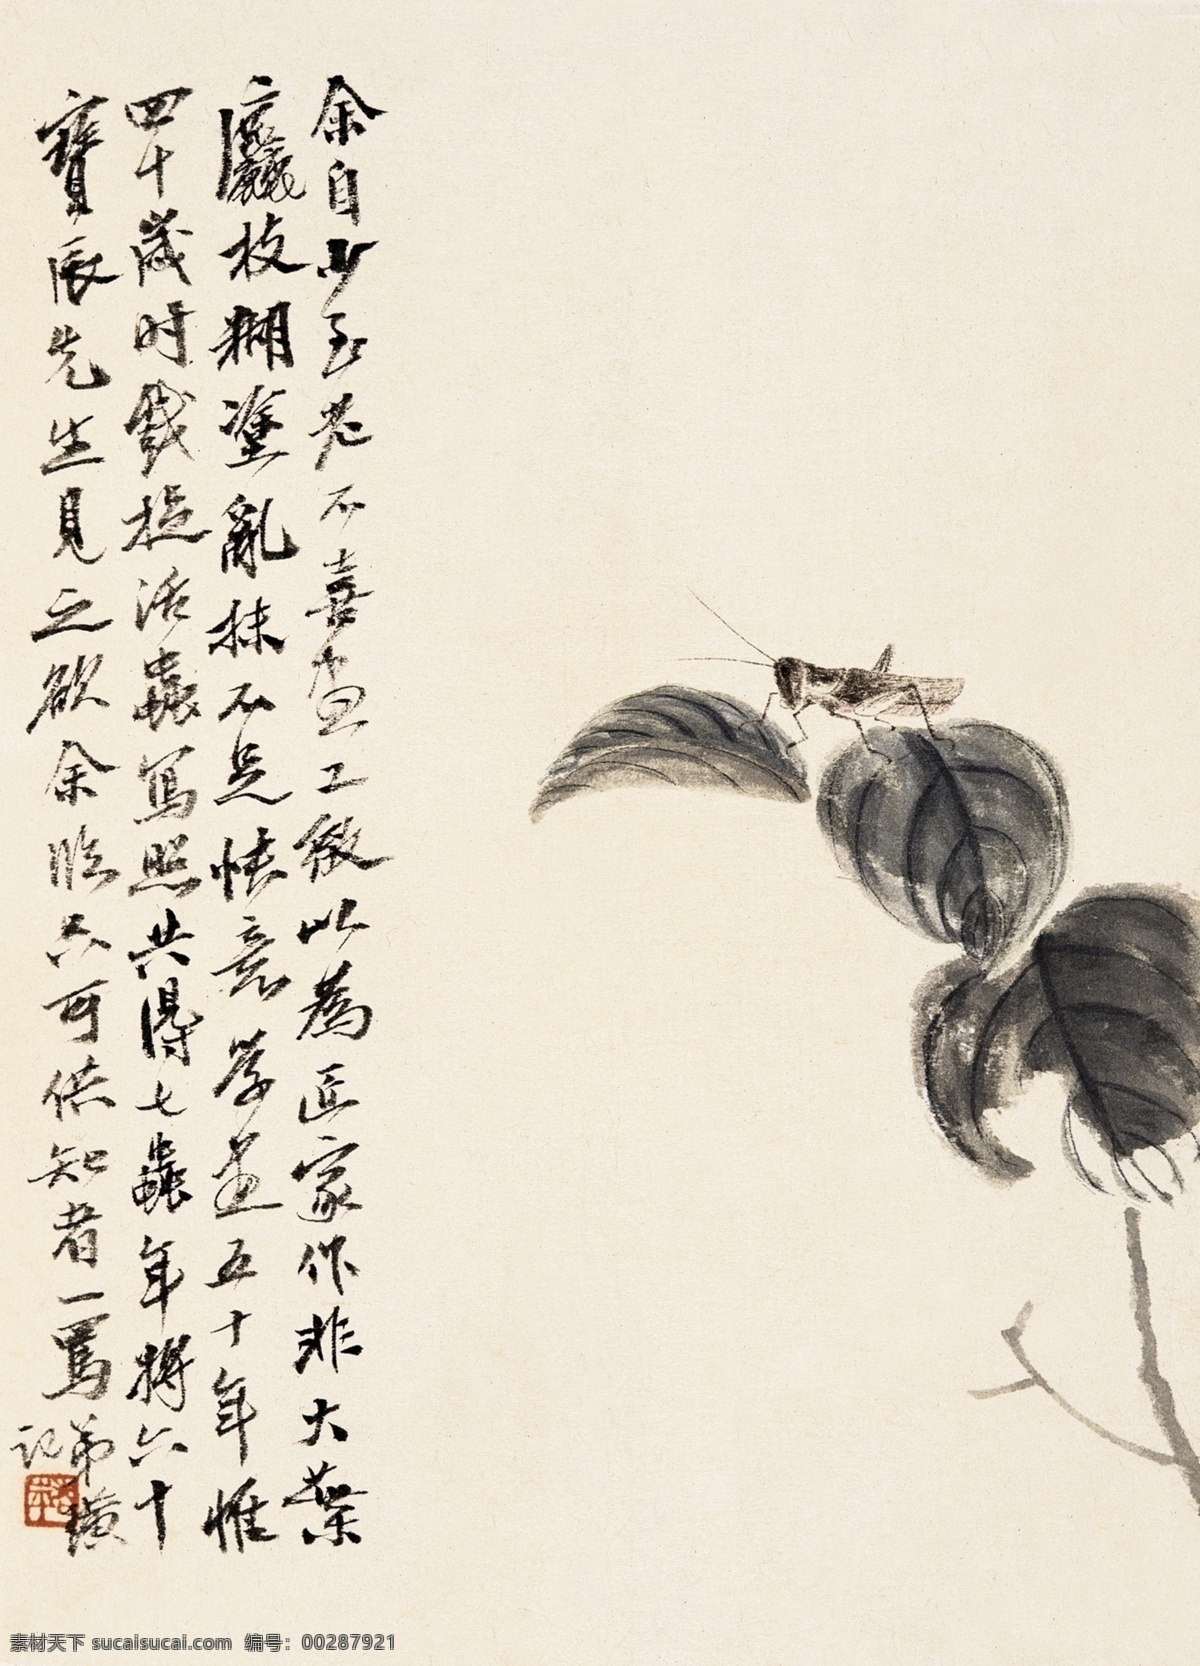 余自少至老不喜畫工緻以為匠家作非大葉
麤枝糊塗亂抹不足快意學畫五十年惟
四十歲時戲捉活蟲寫照共得七蟲年將六十
寶辰先生見之欲余臨只可供知者一罵弟璜
記
素材天下 sucaisucai.com 编号：00287921